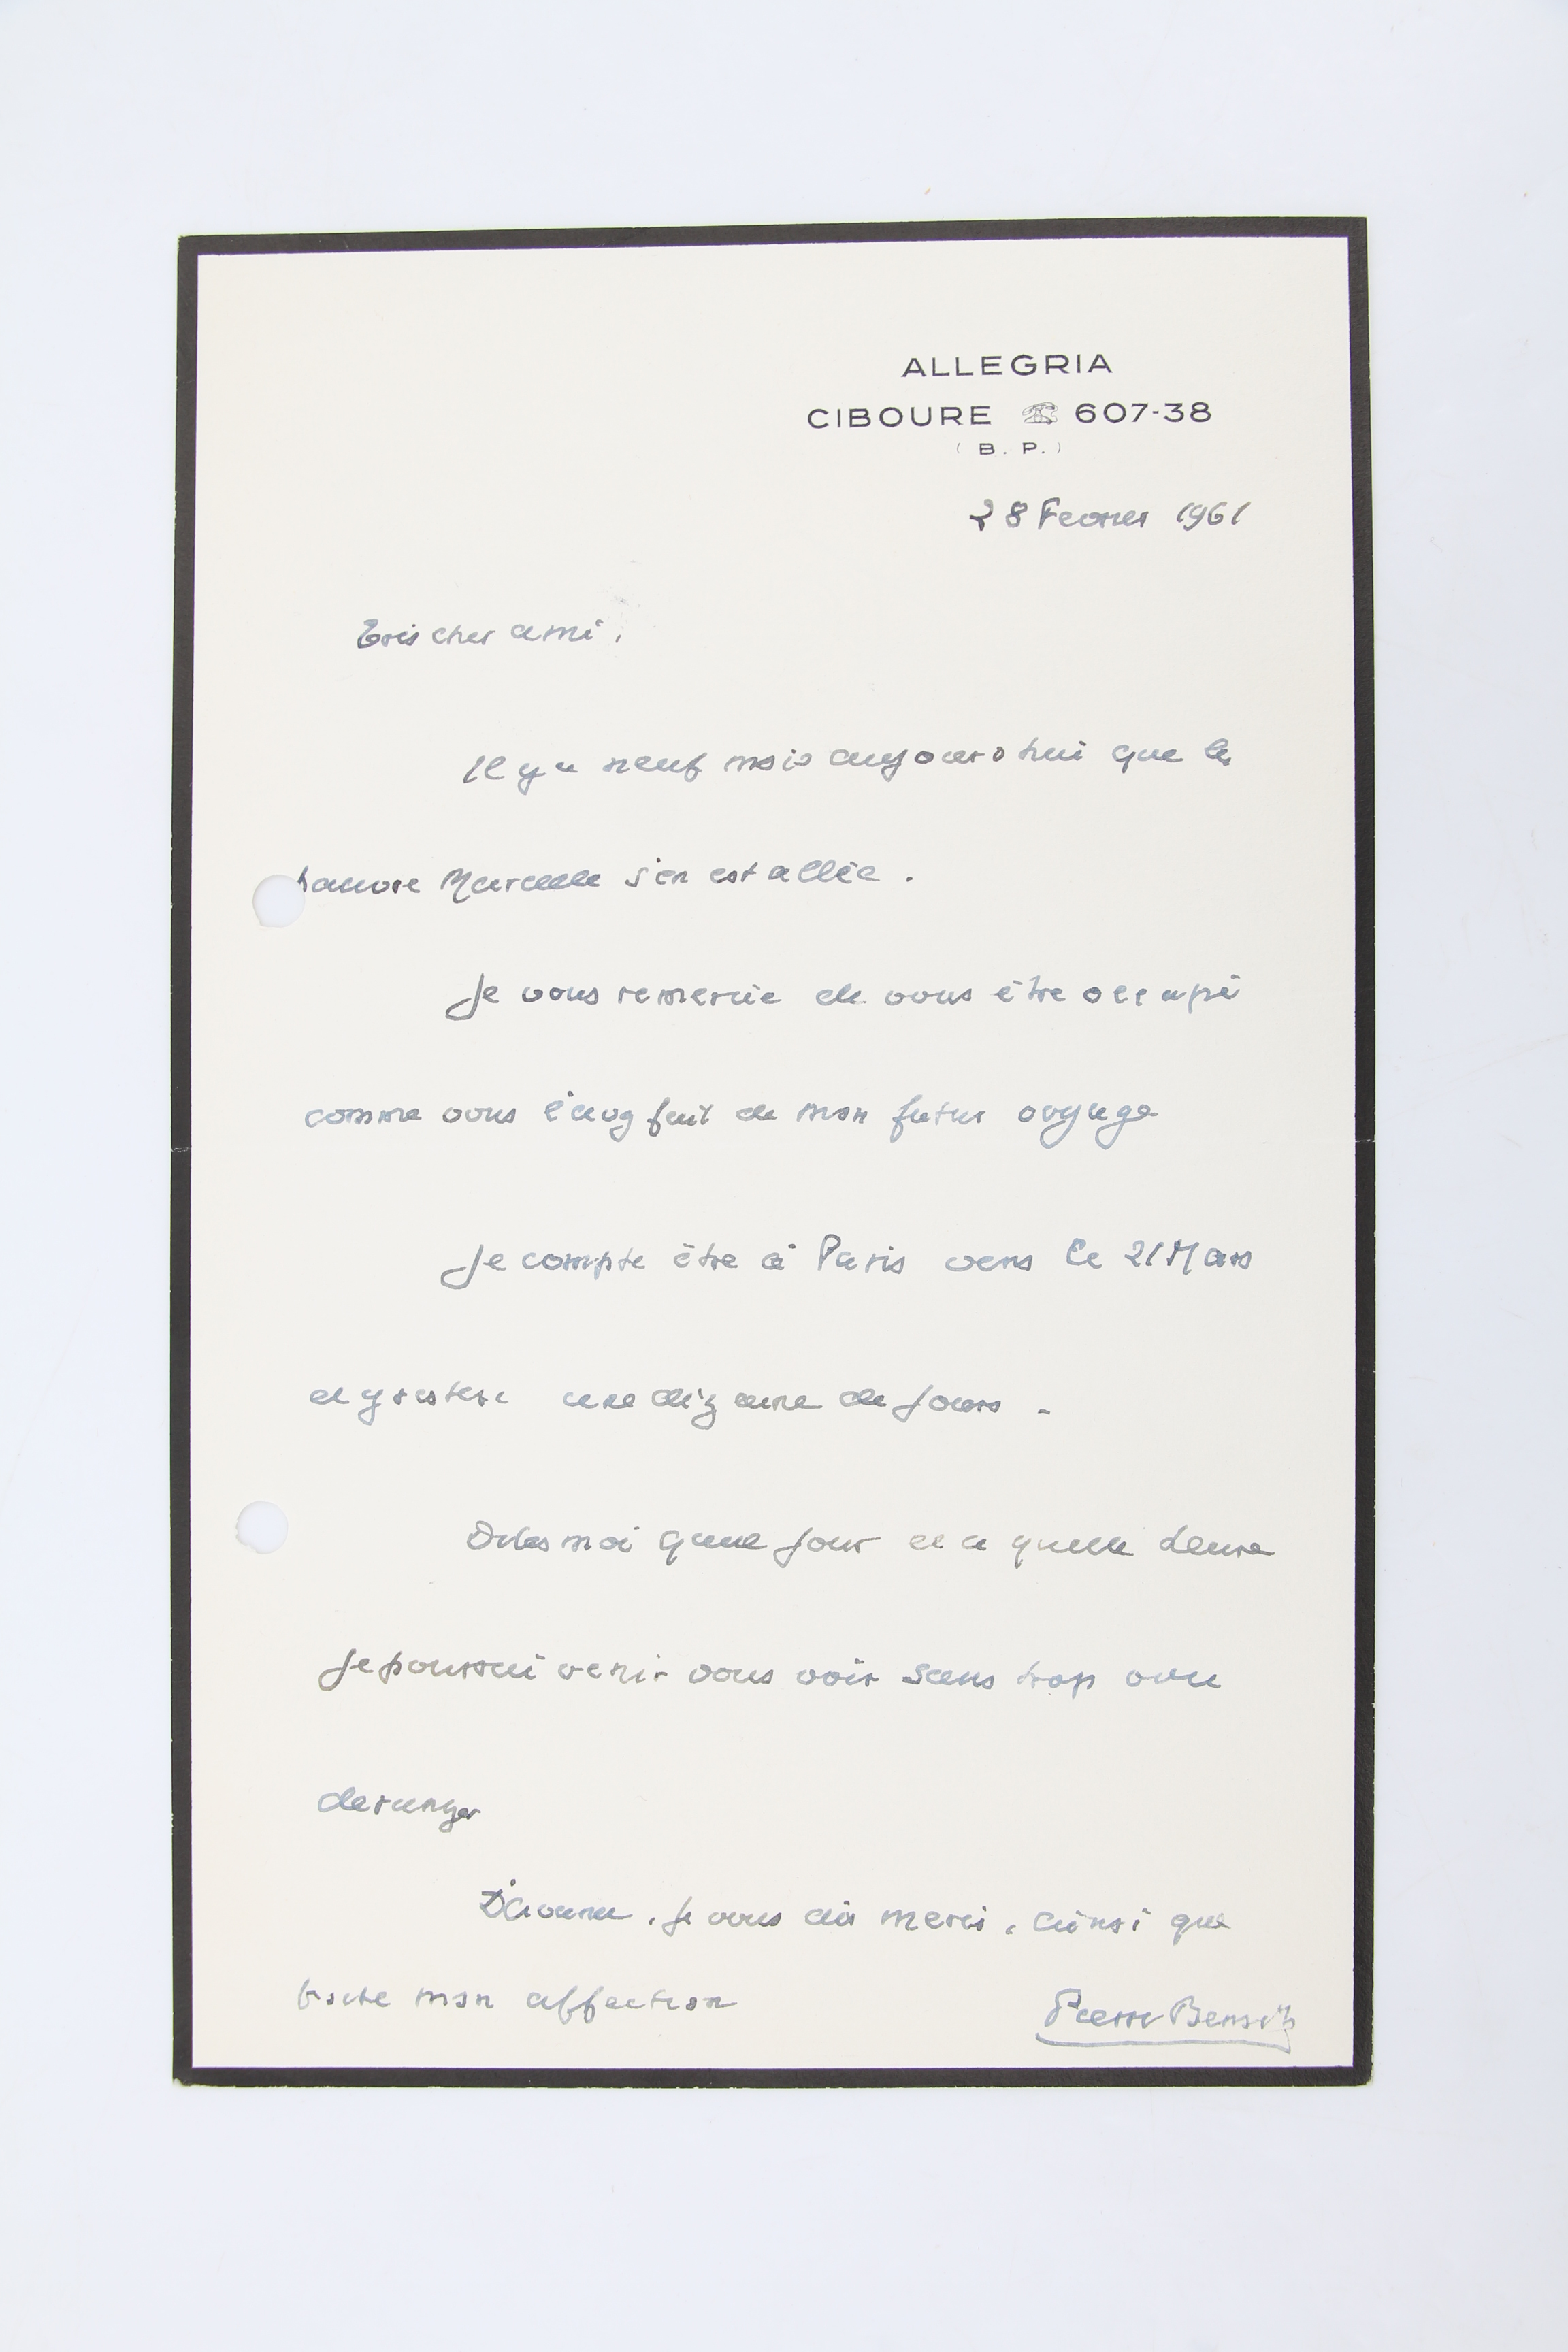 ALLEGRIA
CIBOURE 607-38
(B. P.)
28 Fevrier 1961
Très cher ami,
Il y a neuf mois aujourd'hui que la
pauvre Marcelle s'en est allée.
Je vous remercie de vous être occupé
comme vous l'avez fait de mon futur voyage
Je compte être à Paris vers le 21 Mars
et y rester une dizaine de jours.
Dites moi quel jour et a quelle heure
je pourrai venir vous voir sans trop vous
deranger
D'avance, je vous dis merci, ainsi que
toute mon affection
Pierre Benoit